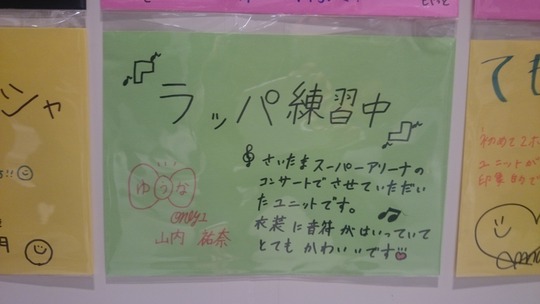 ラッパ練習中
さいたまスーパーアリーナの
コンサートでさせていただい
たユニットです。
衣装に音符がはいっていて
とてもかわいいです
ゆうな
only1
山内 祐奈
シャ
!!
月
ても
初めて
ユニットが
印象的で